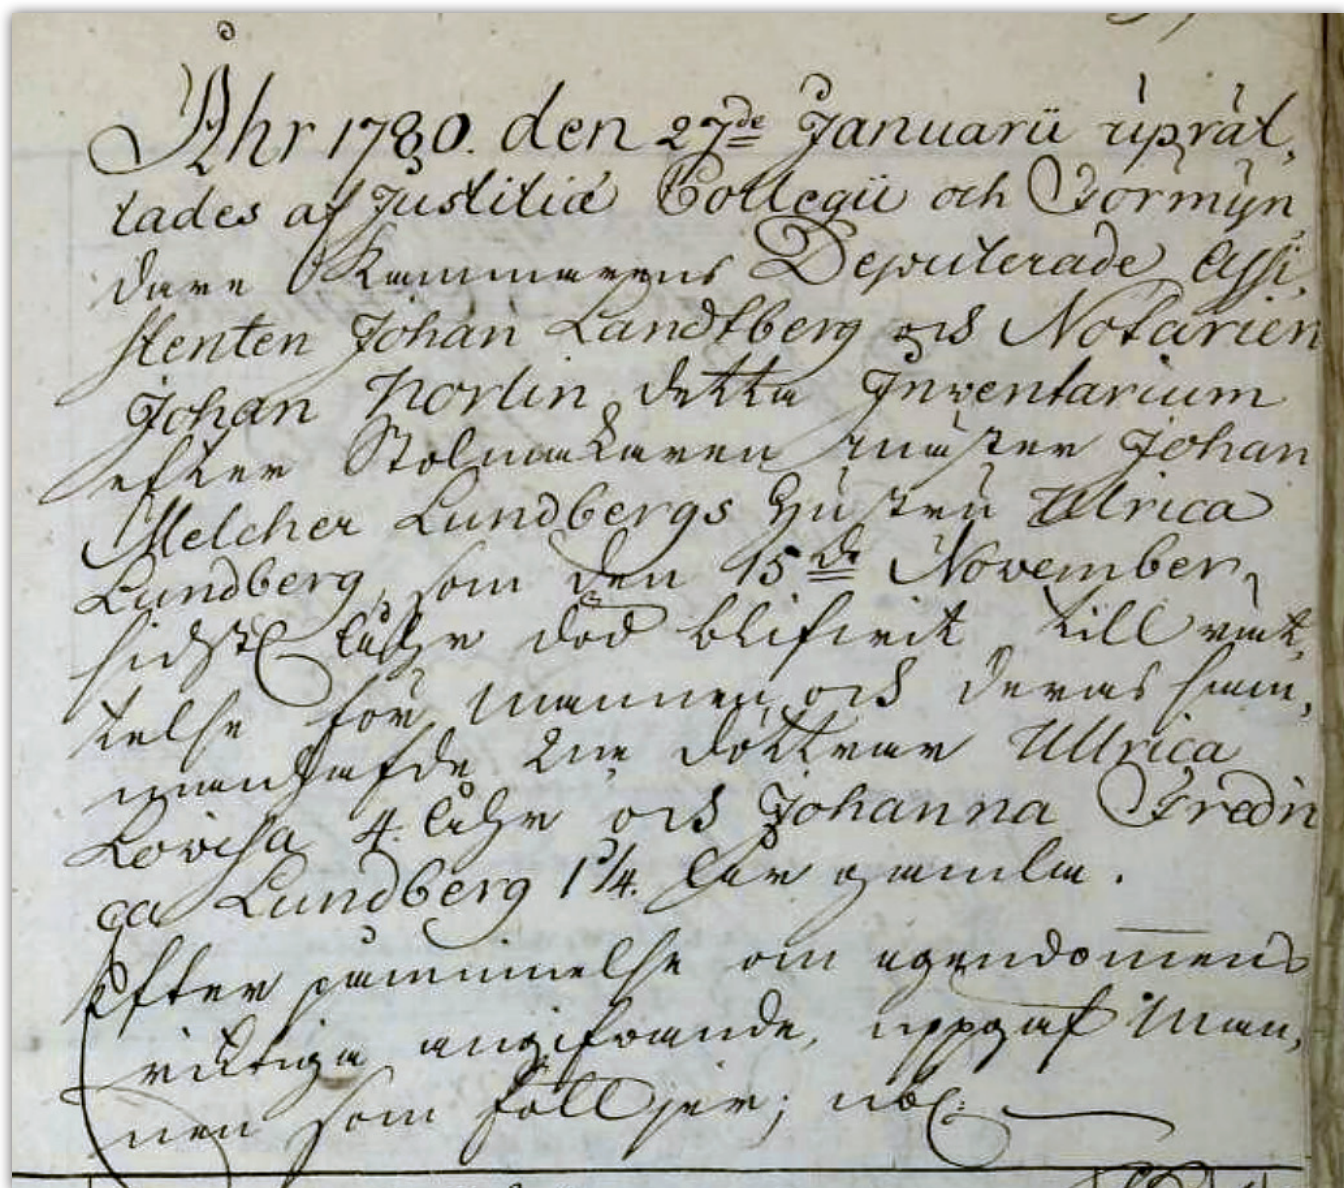 Åhr 1780. den 27de Januarii uprät,
tades af Justitiæ Collegii och Förmyn
dare Kammarens Deputerade Assi,
stenten Johan Landtberg och Notarien
Johan Norlin detta Inventarium
efter Stolmakaren mäster Johan
Melcher Lundbergs Hustru Ulrica
Lundberg, som den 15de November
sidstl. åhr död blifivit till rät,
telse för mannen och deras sam,
manhafde 2ne döttrar Ullrica
Lovisa 4. åhr och Johanna Fredri
ca Lundberg 1 1/4. åhr gamla.
Efter påminnelse om egendomens
riktiga angifvande, uppgaf Man,
nen som följer; nbl: